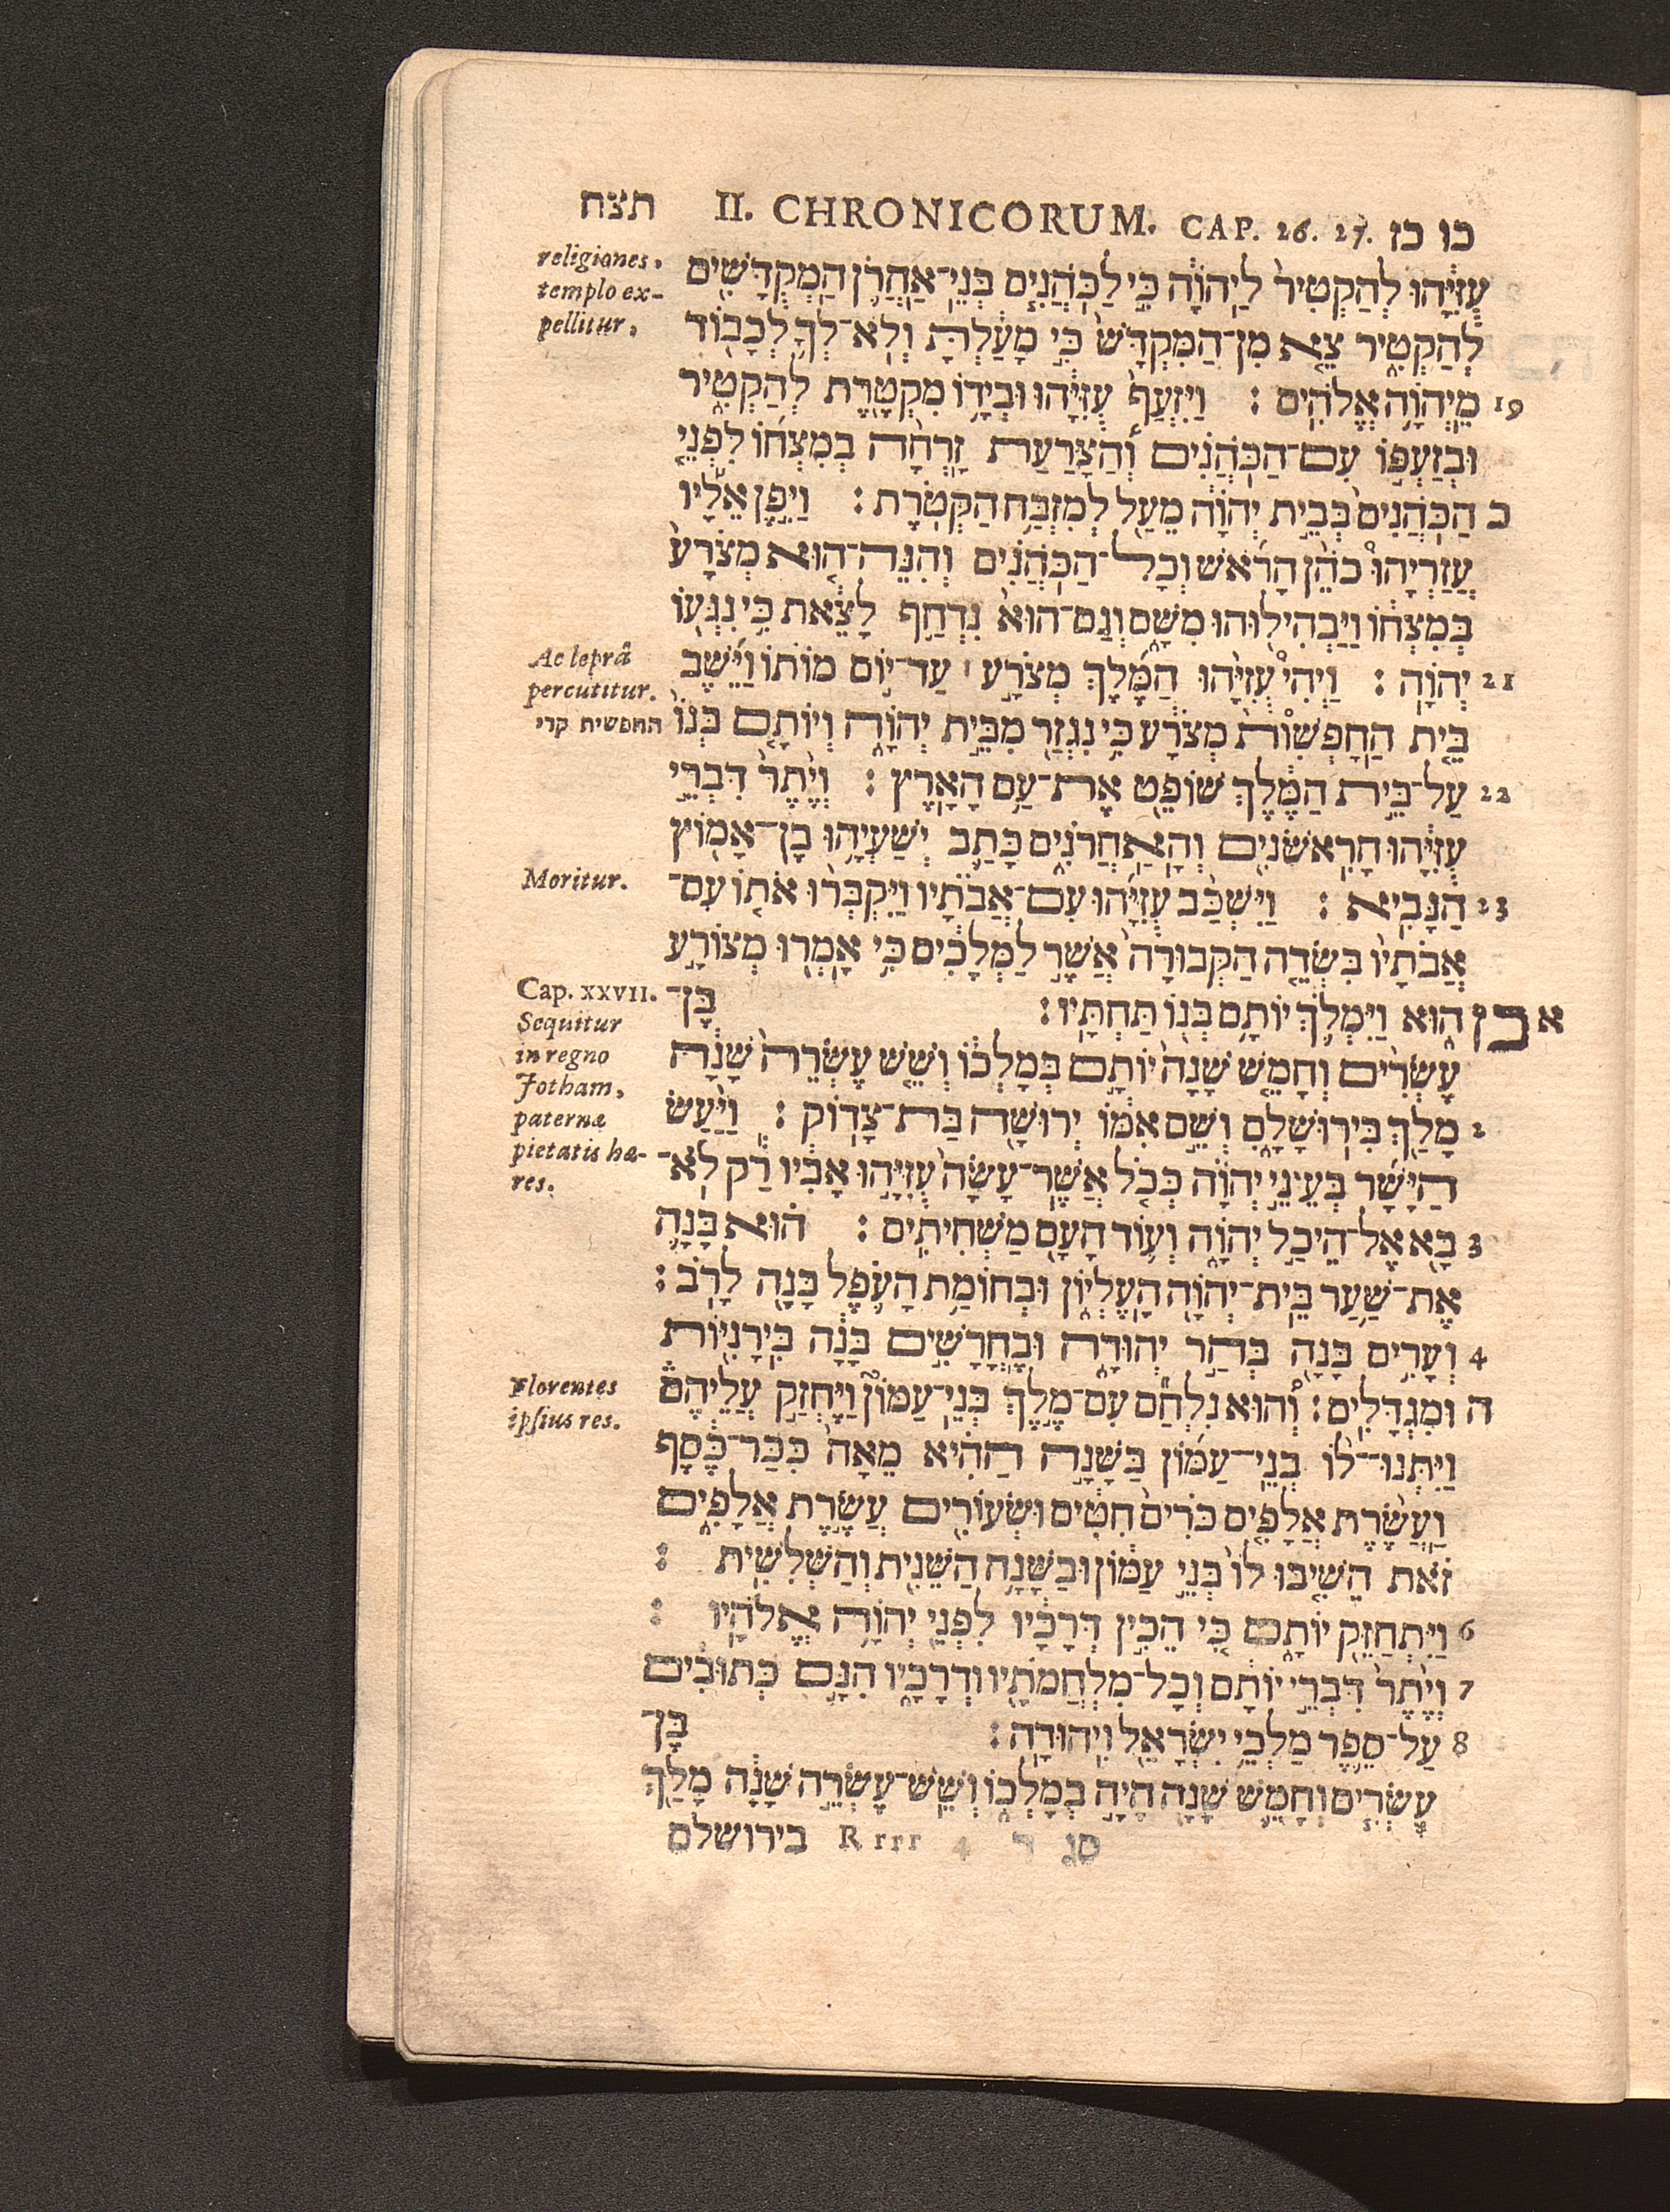 תצח II. CHRONICORUM. CAP. 26. 27. כו כז
religiones.
templo ex-
pellitur,
עֻזִּיָּהוּ לְהַקְטִיר לַיהוָה כִּי לַכֹּהֲנִים בְּנֵי־אַהֲרֹן הַמְקֻדָּשִׁים
לְהַקְטִיר צֵא מִן־הַמִּקְדָּשׁ כִּי מָעַלְתָּ וְלֹא־לְךָ לְכָבוֹד
19 מֵיְהוָה אֱלֹהִים : וַיִּזְעַף עֻזִּיָּהוּ וּבְיָדוֹ מִקְטֶרֶת לְהַקְטִיר
וּבְזַעְפּוֹ עִם־הַכֹּהֲנִים וְהַצָּרַעַת זָרְחָה בְמִצְחוֹ לִפְנֵי
כ הַכֹּהֲנִים בְּבֵית יְהוָה מֵעַל לְמִזְבַּח הַקְּטֹרֶת : וַיִּפֶן אֵלָיו
עֲזַרְיָהוּ כֹהֵן הָרֹאשׁ וְכָל־הַכֹּהֲנִים וְהִנֵּה־הוּא מְצֹרָע
בְּמִצְחוֹ וַיַּבְהִילוּהוּ מִשָּׁם וְגַם־הוּא נִדְחַף לָצֵאת כִּי נִגְּעוֹ
Ac leprâ
percutitur.
21 יְהוָה : וַיְהִי עֻזִּיָּהוּ הַמֶּלֶךְ מְצֹרָע עַד־יוֹם מוֹתוֹ וַיֵּשֶׁב
החפשית קרי
בֵּית הַחָפְשׁוֹת מְצֹרָע כִּי נִגְזַר מִבֵּית יְהוָה וְיוֹתָם בְּנוֹ
22 עַל־בֵּית הַמֶּלֶךְ שׁוֹפֵט אֶת־עַם הָאָרֶץ : וְיֶתֶר דִּבְרֵי
עֻזִּיָּהוּ הָרִאשֹׁנִים וְהָאַחֲרֹנִים כָּתַב יְשַׁעְיָהוּ בֶן־אָמוֹץ
Moritur.
23 הַנָּבִיא : וַיִּשְׁכַּב עֻזִּיָּהוּ עִם־אֲבֹתָיו וַיִּקְבְּרוּ אֹתוֹ עִם־
אֲבֹתָיו בִּשְׂדֵה הַקְּבוּרָה אֲשֶׁר לַמְּלָכִים כִּי אָמְרוּ מְצוֹרָע
Cap. XXVII.
Sequitur
in regno
Jotham,
paternæ
pietatis hæ-
res.
א בן הוּא וַיִּמְלֹךְ יוֹתָם בְּנוֹ תַּחְתָּיו : בֶּן־
עֶשְׂרִים וְחָמֵשׁ שָׁנָה יוֹתָם בְּמָלְכוֹ וְשֵׁשׁ עֶשְׂרֵה שָׁנָה
2 מָלַךְ בִּירוּשָׁלָםִ וְשֵׁם אִמּוֹ יְרוּשָׁה בַּת־צָדוֹק : וַיַּעַשׂ
הַיָּשָׁר בְּעֵינֵי יְהוָה כְּכֹל אֲשֶׁר־עָשָׂה עֻזִּיָּהוּ אָבִיו רַק לֹא־
3 בָא אֶל־הֵיכַל יְהוָה וְעוֹד הָעָם מַשְׁחִיתִים : הוּא בָּנָה
אֶת־שַׁעַר בֵּית־יְהוָה הָעֶלְיוֹן וּבְחוֹמַת הָעֹפֶל בָּנָה לָרֹב :
4 וְעָרִים בָּנָה בְּהַר יְהוּדָה וּבֶחֳרָשִׁים בָּנָה בִּירָנִיּוֹת
Florentes
ipsius res.
ה וּמִגְדָּלִים : וְהוּא נִלְחַם עִם־מֶלֶךְ בְּנֵי־עַמּוֹן וַיֶּחֱזַק עֲלֵיהֶם
וַיִּתְּנוּ־לוֹ בְנֵי־עַמּוֹן בַּשָּׁנָה הַהִיא מֵאָה כִּכַּר־כֶּסֶף
וַעֲשֶׂרֶת אֲלָפִים כֹּרִים חִטִּים וּשְׂעוֹרִים עֲשֶׂרֶת אֲלָפִים
זֹאת הֵשִׁיבוּ לוֹ בְּנֵי עַמּוֹן וּבַשָּׁנָה הַשֵּׁנִית וְהַשְּׁלִשִׁית :
6 וַיִּתְחַזֵּק יוֹתָם כִּי הֵכִין דְּרָכָיו לִפְנֵי יְהוָה אֱלֹהָיו :
7 וְיֶתֶר דִּבְרֵי יוֹתָם וְכָל־מִלְחֲמֹתָיו וּדְרָכָיו הִנָּם כְּתוּבִים
8 עַל־סֵפֶר מַלְכֵי יִשְׂרָאֵל וִיהוּדָה : בֶּן־
עֶשְׂרִים וְחָמֵשׁ שָׁנָה הָיָה בְמָלְכוֹ וְשֵׁשׁ־עֶשְׂרֵה שָׁנָה מָלַךְ
בירושלם Rrrr 4 ד סג